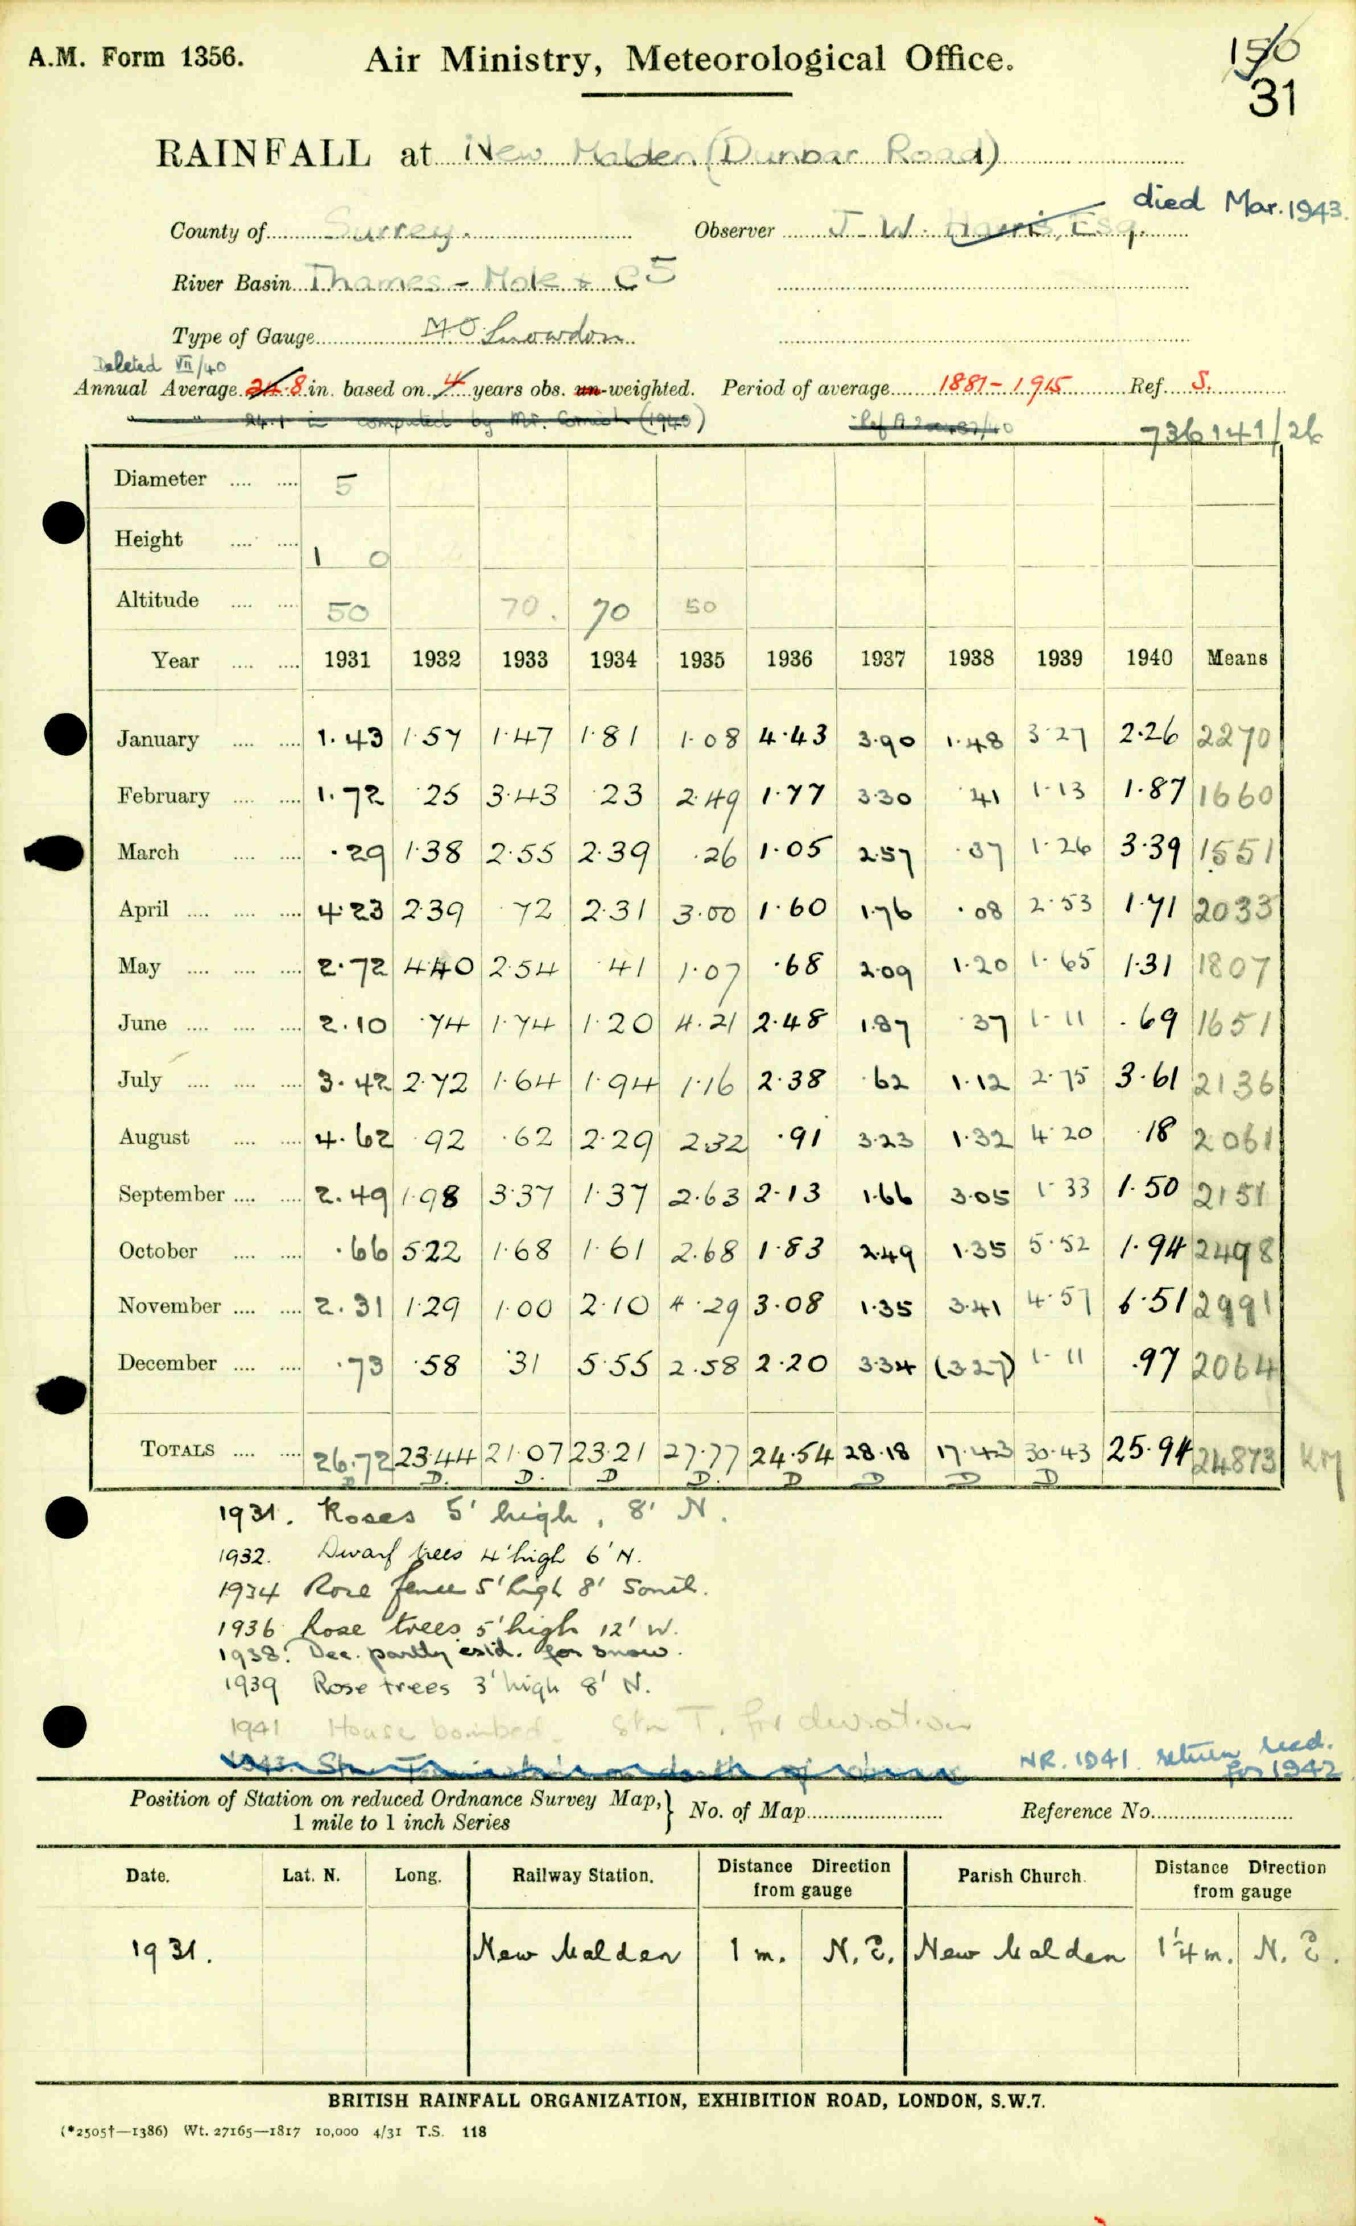 A.M. Form 1356.
Air Ministry, Meteorological Office.
150
31
RAINFALL at New Malden (Dunbar Road)
died Mar. 1943.
County of Surrey. Observer J. W. Harris, Esq.
River Basin Thames - Mole + C5
Type of Gauge M.O. Snowdon
Deleted VII/40
Annual Average 24.8 in. based on 4 years obs. un-weighted. Period of average 1881-1915 Ref. S.
" " 24.1 in computed by Mr. (1940)
736141/26
Diameter .... .... 5
Height .... .... 1 0
Altitude .... .... 50 70. 70 50
Year .... .... 1931 1932 1933 1934 1935 1936 1937 1938 1939 1940 Means
January .... .... 1.43 1.57 1.47 1.81 1.08 4.43 3.90 1.48 3.27 2.26 2270
February .... .... 1.72 .25 3.43 .23 2.49 1.77 3.30 .41 1.13 1.87 1660
March .... .... .29 1.38 2.55 2.39 .26 1.05 2.57 .37 1.26 3.39 1551
April .... .... .... 4.23 2.39 .72 2.31 3.00 1.60 1.76 .08 2.53 1.71 2033
May .... .... .... 2.72 4.40 2.54 .41 1.07 .68 2.09 1.20 1.65 1.31 1807
June .... .... .... 2.10 .74 1.74 1.20 4.21 2.48 1.87 .37 1.11 .69 1651
July .... .... .... 3.42 2.72 1.64 1.94 1.16 2.38 .62 1.12 2.75 3.61 2136
August .... .... 4.62 .92 .62 2.29 2.32 .91 3.23 1.32 4.20 .18 2061
September .... .... 2.49 1.98 3.37 1.37 2.63 2.13 1.66 3.05 1.33 1.50 2151
October .... .... .66 5.22 1.68 1.61 2.68 1.83 2.49 1.35 5.52 1.94 2498
November .... .... 2.31 1.29 1.00 2.10 4.29 3.08 1.35 3.41 4.57 6.51 2991
December .... .... .73 .58 .31 5.55 2.58 2.20 3.34 (3.27) 1.11 .97 2064
TOTALS .... .... 26.72 23.44 21.07 23.21 27.77 24.54 28.18 17.43 30.43 25.94 24873 KM
D. D. D. D D. D D D D
1931. Roses 5' high, 8' N.
1932. Dwarf trees 4' high 6' N.
1934 Rose fence 5' high 8' South.
1936 Rose trees 5' high 12' W.
1938. Dec. partly estd. for snow.
1939 Rose trees 3' high 8' N.
1941 House bombed. Stn T. for duration
1943. Stn Terminated on death of
NR. 1941. return recd.
for 1942
Position of Station on reduced Ordnance Survey Map,} No. of Map Reference No.
1 mile to 1 inch Series
Date. Lat. N. Long. Railway Station. Distance Direction from gauge Parish Church. Distance Direction from gauge
1931. New Malden 1 m. N.E. New Malden 1¼ m. N.E.
BRITISH RAINFALL ORGANIZATION, EXHIBITION ROAD, LONDON, S.W.7.
(*2505†—1386) Wt. 27165—1817 10,000 4/31 T.S. 118